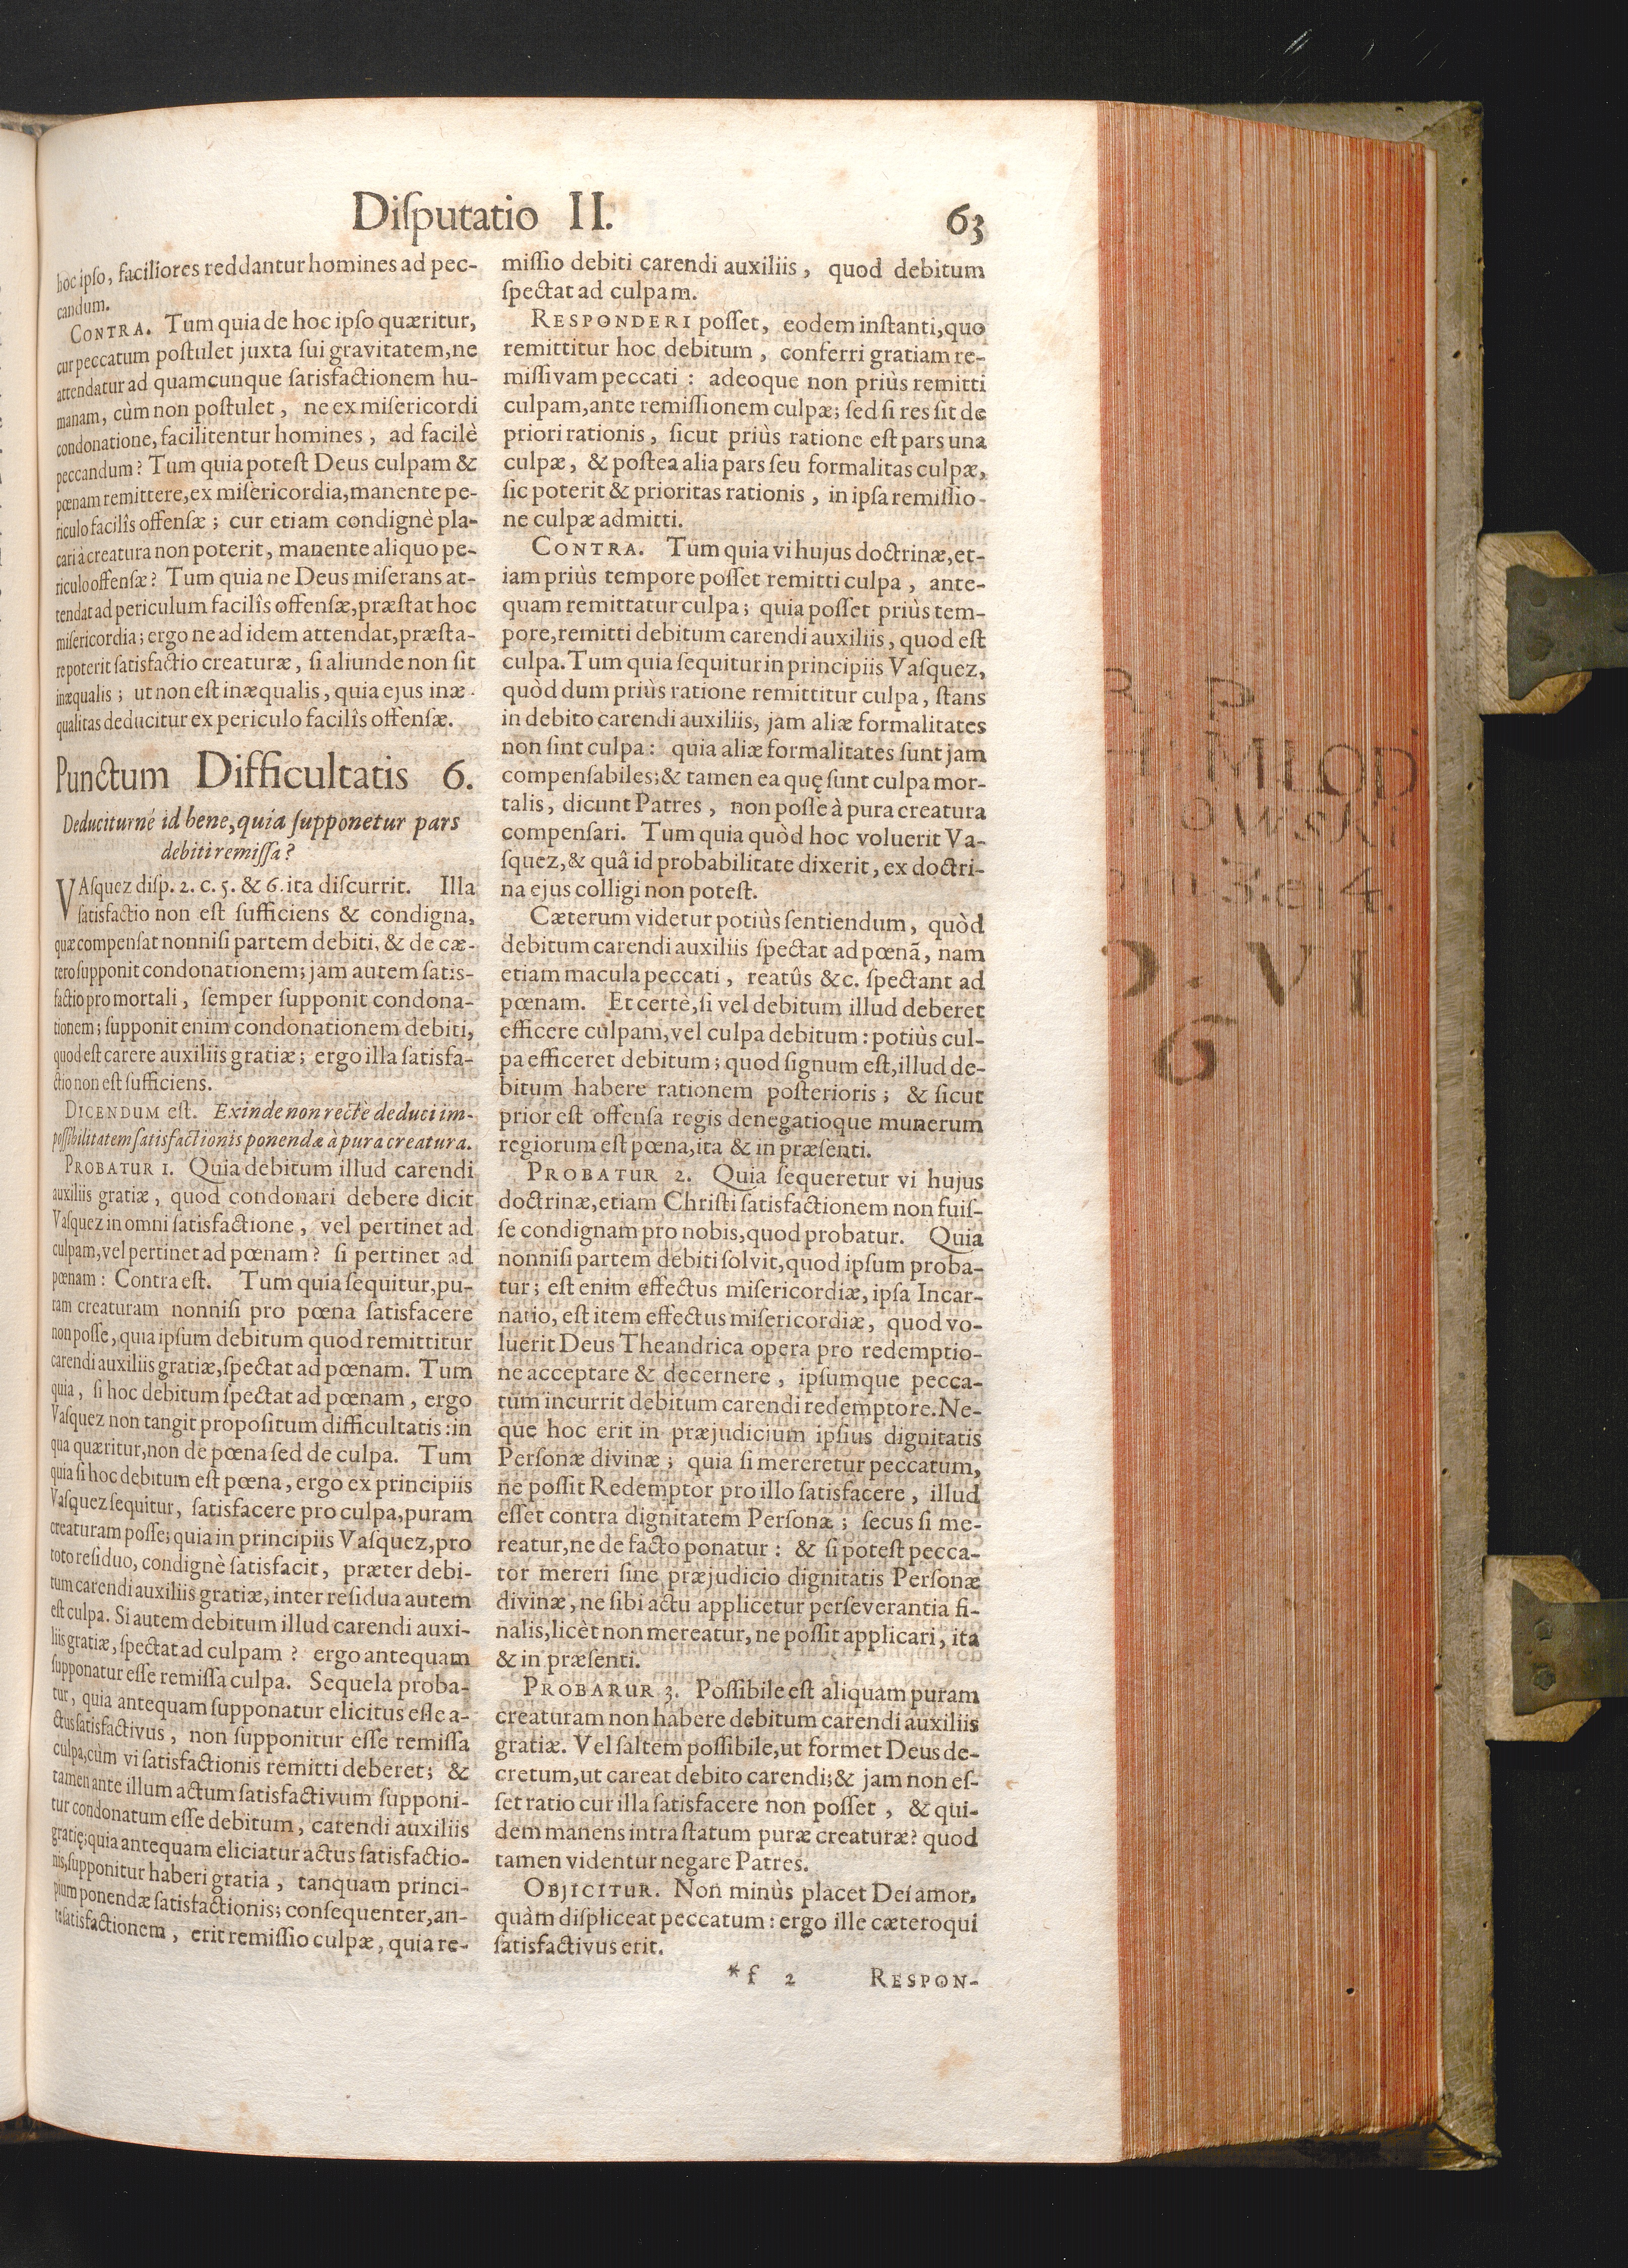 Disputatio II. 63
hoc ipso, faciliores reddantur homines ad pec-
candum.
CONTRA. Tum quia de hoc ipso quæritur,
cur peccatum postulet juxta sui gravitatem, ne
attendatur ad quamcunque satisfactionem hu-
manam, cùm non postulet, ne ex misericordi
condonatione, facilitentur homines, ad facilè
peccandum? Tum quia potest Deus culpam &
pœnam remittere, ex misericordia, manente pe-
riculo facilîs offensæ; cur etiam condignè pla-
cari à creatura non poterit, manente aliquo pe-
riculo offensæ? Tum quia ne Deus miserans at-
tendat ad periculum facilîs offensæ, præstat hoc
misericordia; ergo ne ad idem attendat, præsta-
re poterit satisfactio creaturæ, si aliunde non sit
inæqualis; ut non est inæqualis, quia ejus inæ-
qualitas deducitur ex periculo facilîs offensæ.
Punctum Difficultatis 6.
Deduciturné id bene, quia supponetur pars
debiti remissa?
VAsquez disp. 2. c. 5. & 6. ita discurrit. Illa
satisfactio non est sufficiens & condigna,
quæ compensat nonnisi partem debiti, & de cæ-
tero supponit condonationem; jam autem satis-
factio pro mortali, semper supponit condona-
tionem; supponit enim condonationem debiti,
quod est carere auxiliis gratiæ; ergo illa satisfa-
ctio non est sufficiens.
DICENDUM est. Exinde non rectè deduci im-
possibilitatem satisfactionis ponendæ à pura creatura.
PROBATUR 1. Quia debitum illud carendi
auxiliis gratiæ, quod condonari debere dicit
Vasquez in omni satisfactione, vel pertinet ad
culpam, vel pertinet ad pœnam? si pertinet ad
pœnam: Contra est. Tum quia sequitur, pu-
ram creaturam nonnisi pro pœna satisfacere
non posse, quia ipsum debitum quod remittitur
carendi auxiliis gratiæ, spectat ad pœnam. Tum
quia, si hoc debitum spectat ad pœnam, ergo
Vasquez non tangit propositum difficultatis: in
qua quæritur, non de pœna sed de culpa. Tum
quia si hoc debitum est pœna, ergò ex principiis
Vasquez sequitur, satisfacere pro culpa, puram
creaturam posse; quia in principiis Vasquez, pro
toto residuo, condignè satisfacit, præter debi-
tum carendi auxiliis gratiæ, inter residua autem
est culpa. Si autem debitum illud carendi auxi-
liis gratiæ, spectat ad culpam? ergo antequam
supponatur esse remissa culpa. Sequela proba-
tur, quia antequam supponatur elicitus esse a-
ctus satisfactivus, non supponitur esse remissa
culpa, cùm vi satisfactionis remitti deberet; &
tamen ante illum actum satisfactivum supponi-
tur condonatum esse debitum, carendi auxiliis
gratię; quia antequam eliciatur actus satisfactio-
nis, supponitur haberi gratia, tanquam princi-
pium ponendæ satisfactionis; consequenter, an-
te satisfactionem, erit remissio culpæ, quia re-
missio debiti carendi auxiliis, quod debitum
spectat ad culpam.
RESPONDERI posset, eodem instanti, quo
remittitur hoc debitum, conferri gratiam re-
missivam peccati: adeoque non priùs remitti
culpam, ante remissionem culpæ; sed si res sit de
priori rationis, sicut priùs ratione est pars una
culpæ, & postea alia pars seu formalitas culpæ,
sic poterit & prioritas rationis, in ipsa remissio-
ne culpæ admitti.
CONTRA. Tum quia vi hujus doctrinæ, et-
iam priùs tempore posset remitti culpa, ante-
quam remittatur culpa; quia posset priùs tem-
pore, remitti debitum carendi auxiliis, quod est
culpa. Tum quia sequitur in principiis Vasquez,
quòd dum priùs ratione remittitur culpa, stans
in debito carendi auxiliis, jam aliæ formalitates
non sint culpa: quia aliæ formalitates sunt jam
compensabiles; & tamen ea quę sunt culpa mor-
talis, dicunt Patres, non posse à pura creatura
compensari. Tum quia quòd hoc voluerit Va-
squez, & quâ id probabilitate dixerit, ex doctri-
na ejus colligi non potest.
Cæterum videtur potiùs sentiendum, quòd
debitum carendi auxiliis spectat ad pœnã, nam
etiam macula peccati, reatûs &c. spectant ad
pœnam. Et certè, si vel debitum illud deberet
efficere culpam, vel culpa debitum: potiùs cul-
pa efficeret debitum; quod signum est, illud de-
bitum habere rationem posterioris; & sicut
prior est offensa regis denegatioque munerum
regiorum est pœna, ita & in præsenti.
PROBATUR 2. Quia sequeretur vi hujus
doctrinæ, etiam Christi satisfactionem non fuis-
se condignam pro nobis, quod probatur. Quia
nonnisi partem debiti solvit, quod ipsum proba-
tur; est enim effectus misericordiæ, ipsa Incar-
natio, est item effectus misericordiæ, quod vo-
luerit Deus Theandrica opera pro redemptio-
ne acceptare & decernere, ipsumque pecca-
tum incurrit debitum carendi redemptore. Ne-
que hoc erit in præjudicium ipsius dignitatis
Personæ divinæ; quia si mereretur peccatum,
ne possit Redemptor pro illo satisfacere, illud
esset contra dignitatem Personæ; secus si me-
reatur, ne de facto ponatur: & si potest pecca-
tor mereri sine præjudicio dignitatis Personæ
divinæ, ne sibi actu applicetur perseverantia fi-
nalis, licèt non mereatur, ne possit applicari, ita
& in præsenti.
PROBARUR 3. Possibile est aliquam puram
creaturam non habere debitum carendi auxiliis
gratiæ. Vel saltem possibile, ut formet Deus de-
cretum, ut careat debito carendi; & jam non es-
set ratio cur illa satisfacere non posset, & qui-
dem manens intra statum puræ creaturæ? quod
tamen videntur negare Patres.
OBJICITUR. Non minùs placet Dei amor,
quàm displiceat peccatum: ergo ille cæteroqui
satisfactivus erit.
*f 2 RESPON-
R. P.
MLOD
3. et 4.
VI
6